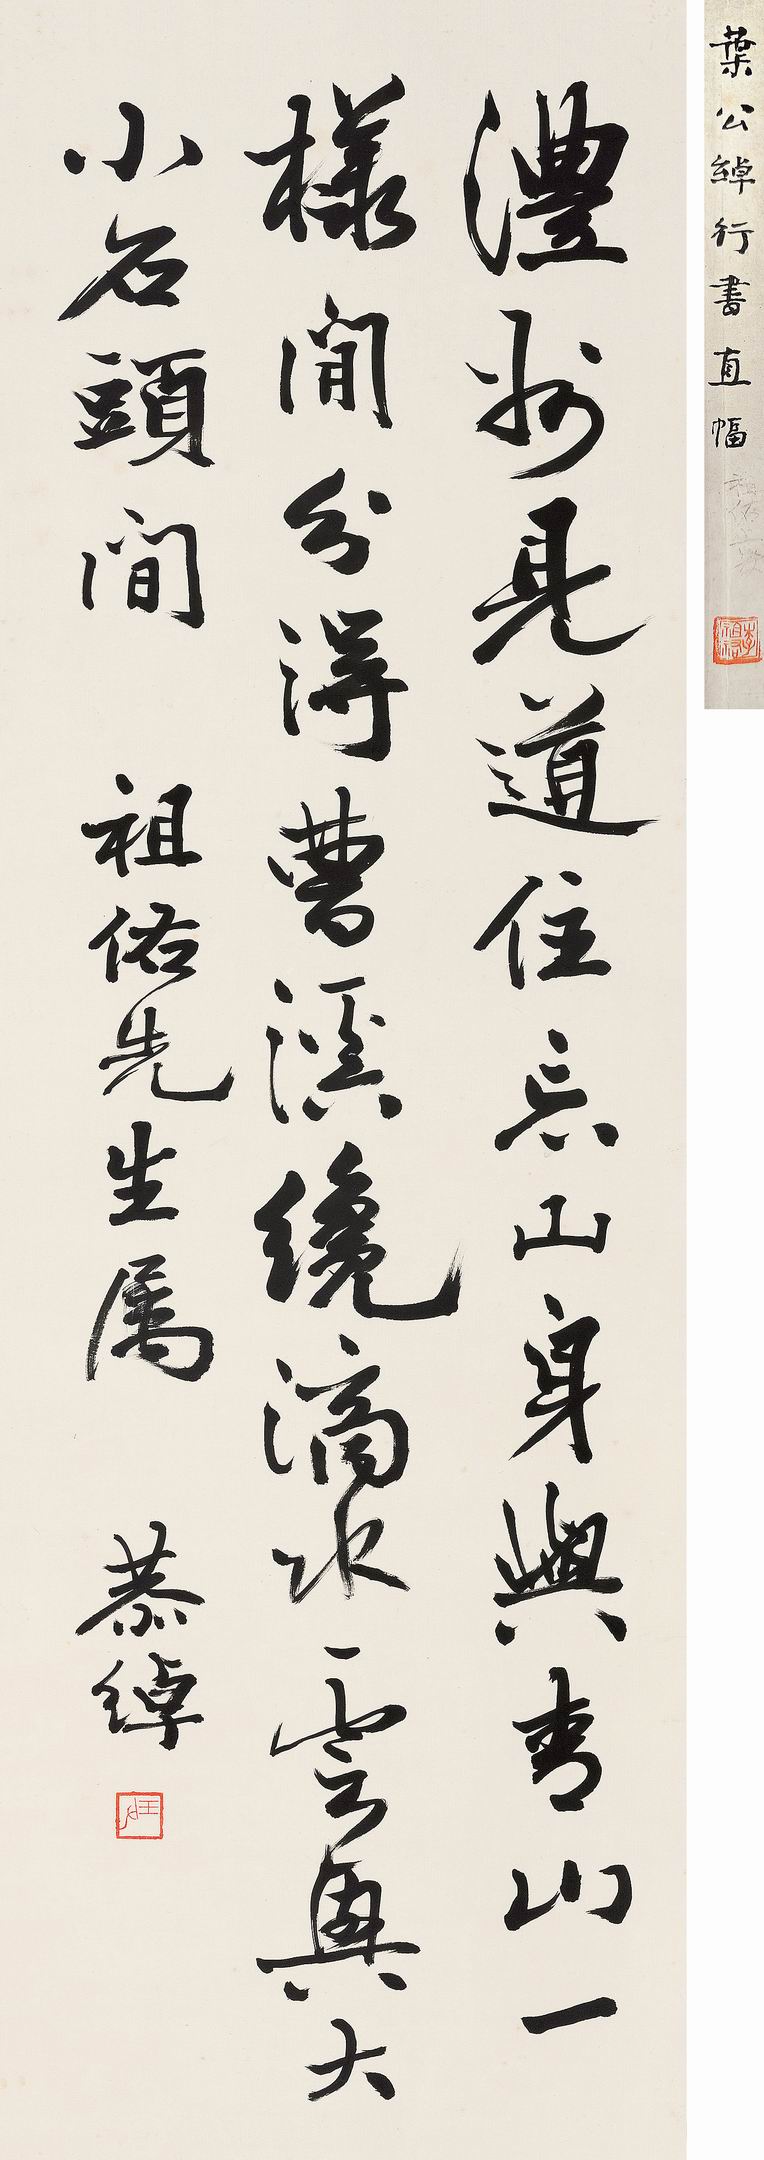 葉公綽行書直幅
澧州見道住山身與青山一
樣閒分得曹溪纔滴水雲興大
小石頭間
祖佑先生屬
恭綽